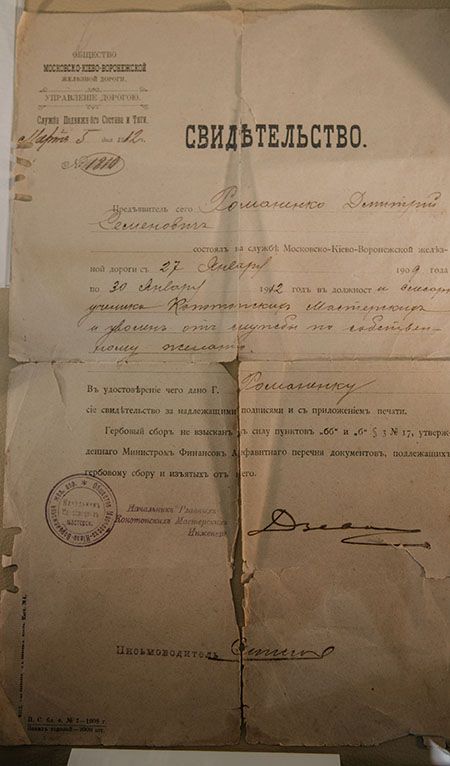 ОБЩЕСТВО
МОСКОВСКО-КІЕВО-ВОРОНЕЖСКОЙ
ЖЕЛѢЗНОЙ ДОРОГИ.
УПРАВЛЕНІЕ ДОРОГОЮ.
Служба Подвижного Состава и Тяги.
Марта 5 дня 1912 г.
№ 1810
СВИДѢТЕЛЬСТВО.
Предъявитель сего Романенко Дмитрій
Семеновичъ
состоялъ на службѣ Московско-Кіево-Воронежской желѣз-
ной дороги съ 27 Января 1909 года
по 30 Января 1912 годъ въ должност и слесар
ученика Конотопскихъ Мастерскихъ
и уволенъ отъ службы по собствен-
ному желанію.
Въ удостовѣреніе чего дано Г. Романенку
сіе свидѣтельство за надлежащими подписями и съ приложеніемъ печати.
Гербовый сборъ не взысканъ въ силу пунктовъ „бб" и „б" § 3 № 17, утверж-
деннаго Министромъ Финансовъ Алфавитнаго перечня документовъ, подлежащихъ
гербовому сбору и изъятыхъ отъ него.
Начальникъ Главныхъ
Конотопскихъ Мастерскихъ
Инженеръ
Письмоводитель